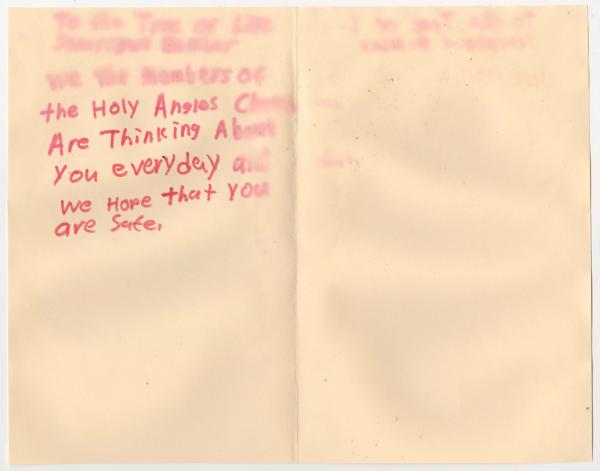 To the Tree of Life
We the Members of
the Holy Angles
Are Thinking About
You everyday and
We Hope that you
are Safe.